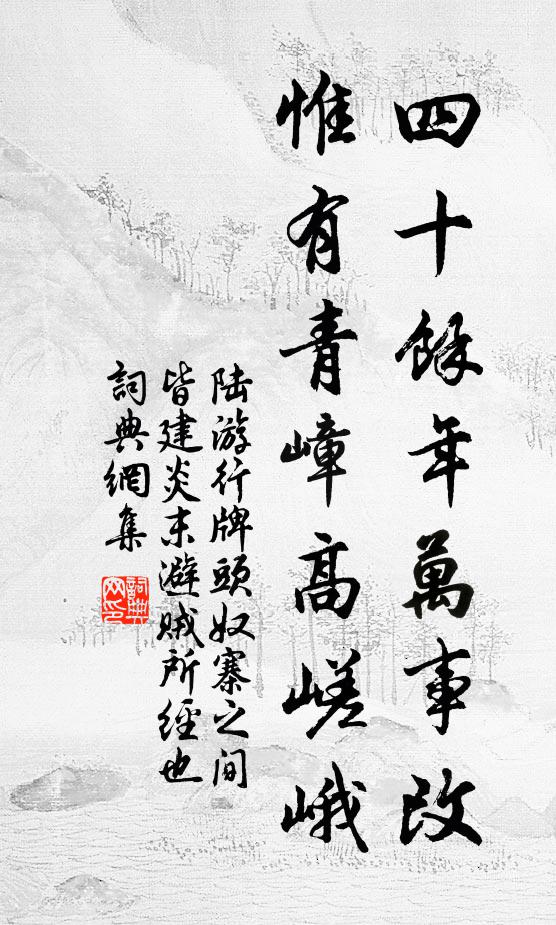 四十餘年萬事改
惟有青嶂高嵯峨
陆游行牌頭奴寨之间
皆建炎末避贼所經也
詞典網集
詞典
文印